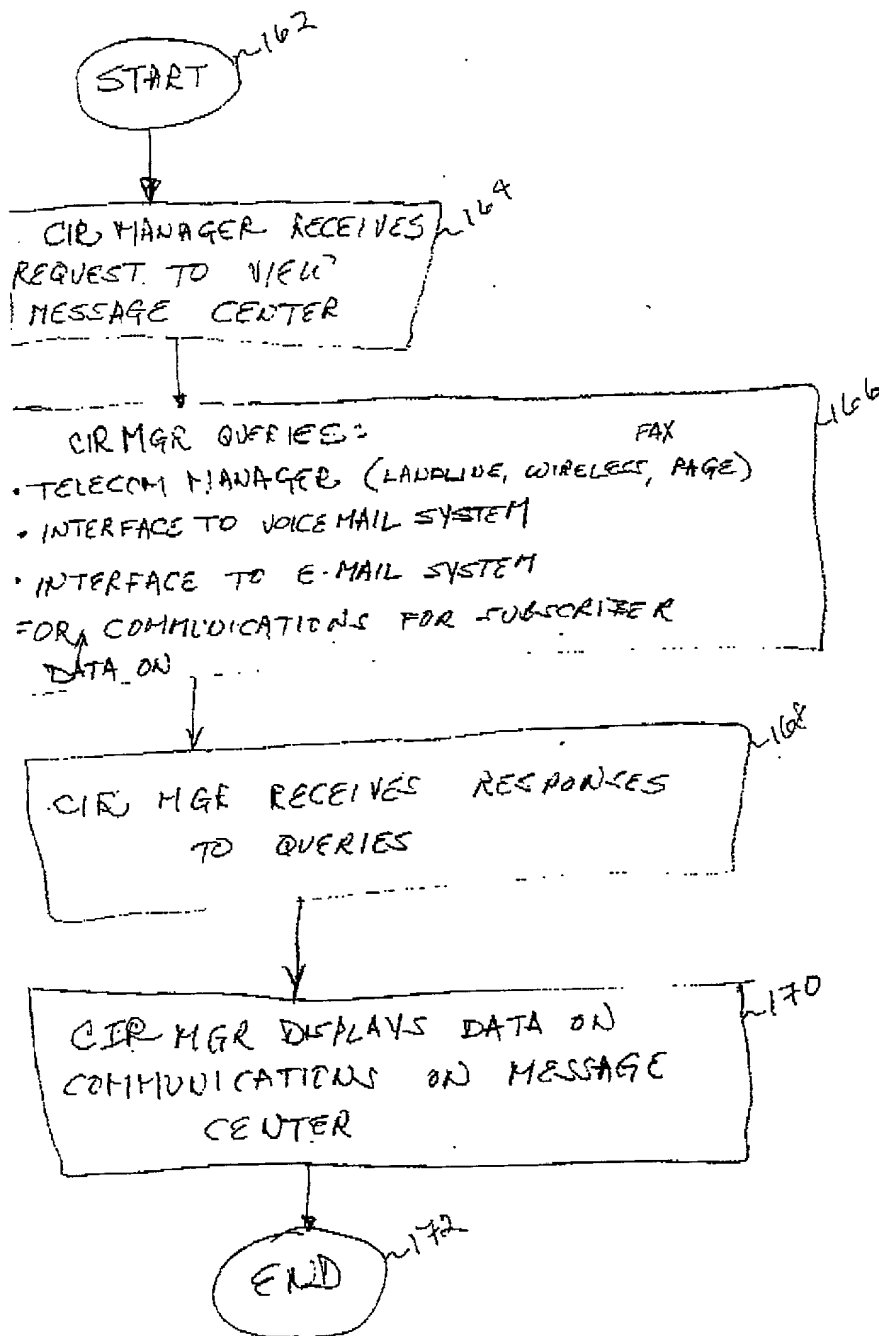 START
~162
CIR MANAGER RECEIVES
~164
REQUEST TO VIEW
MESSAGE CENTER
~166
CIR MGR QUERIES: FAX
• TELECOM MANAGER (LANDLINE, WIRELESS, PAGE)
• INTERFACE TO VOICE MAIL SYSTEM
• INTERFACE TO E-MAIL SYSTEM
FOR COMMUNICATIONS FOR SUBSCRIBER
DATA ON
~168
CIR MGR RECEIVES RESPONSES
TO QUERIES
~170
CIR MGR DISPLAYS DATA ON
COMMUNICATIONS ON MESSAGE
CENTER
~172
END